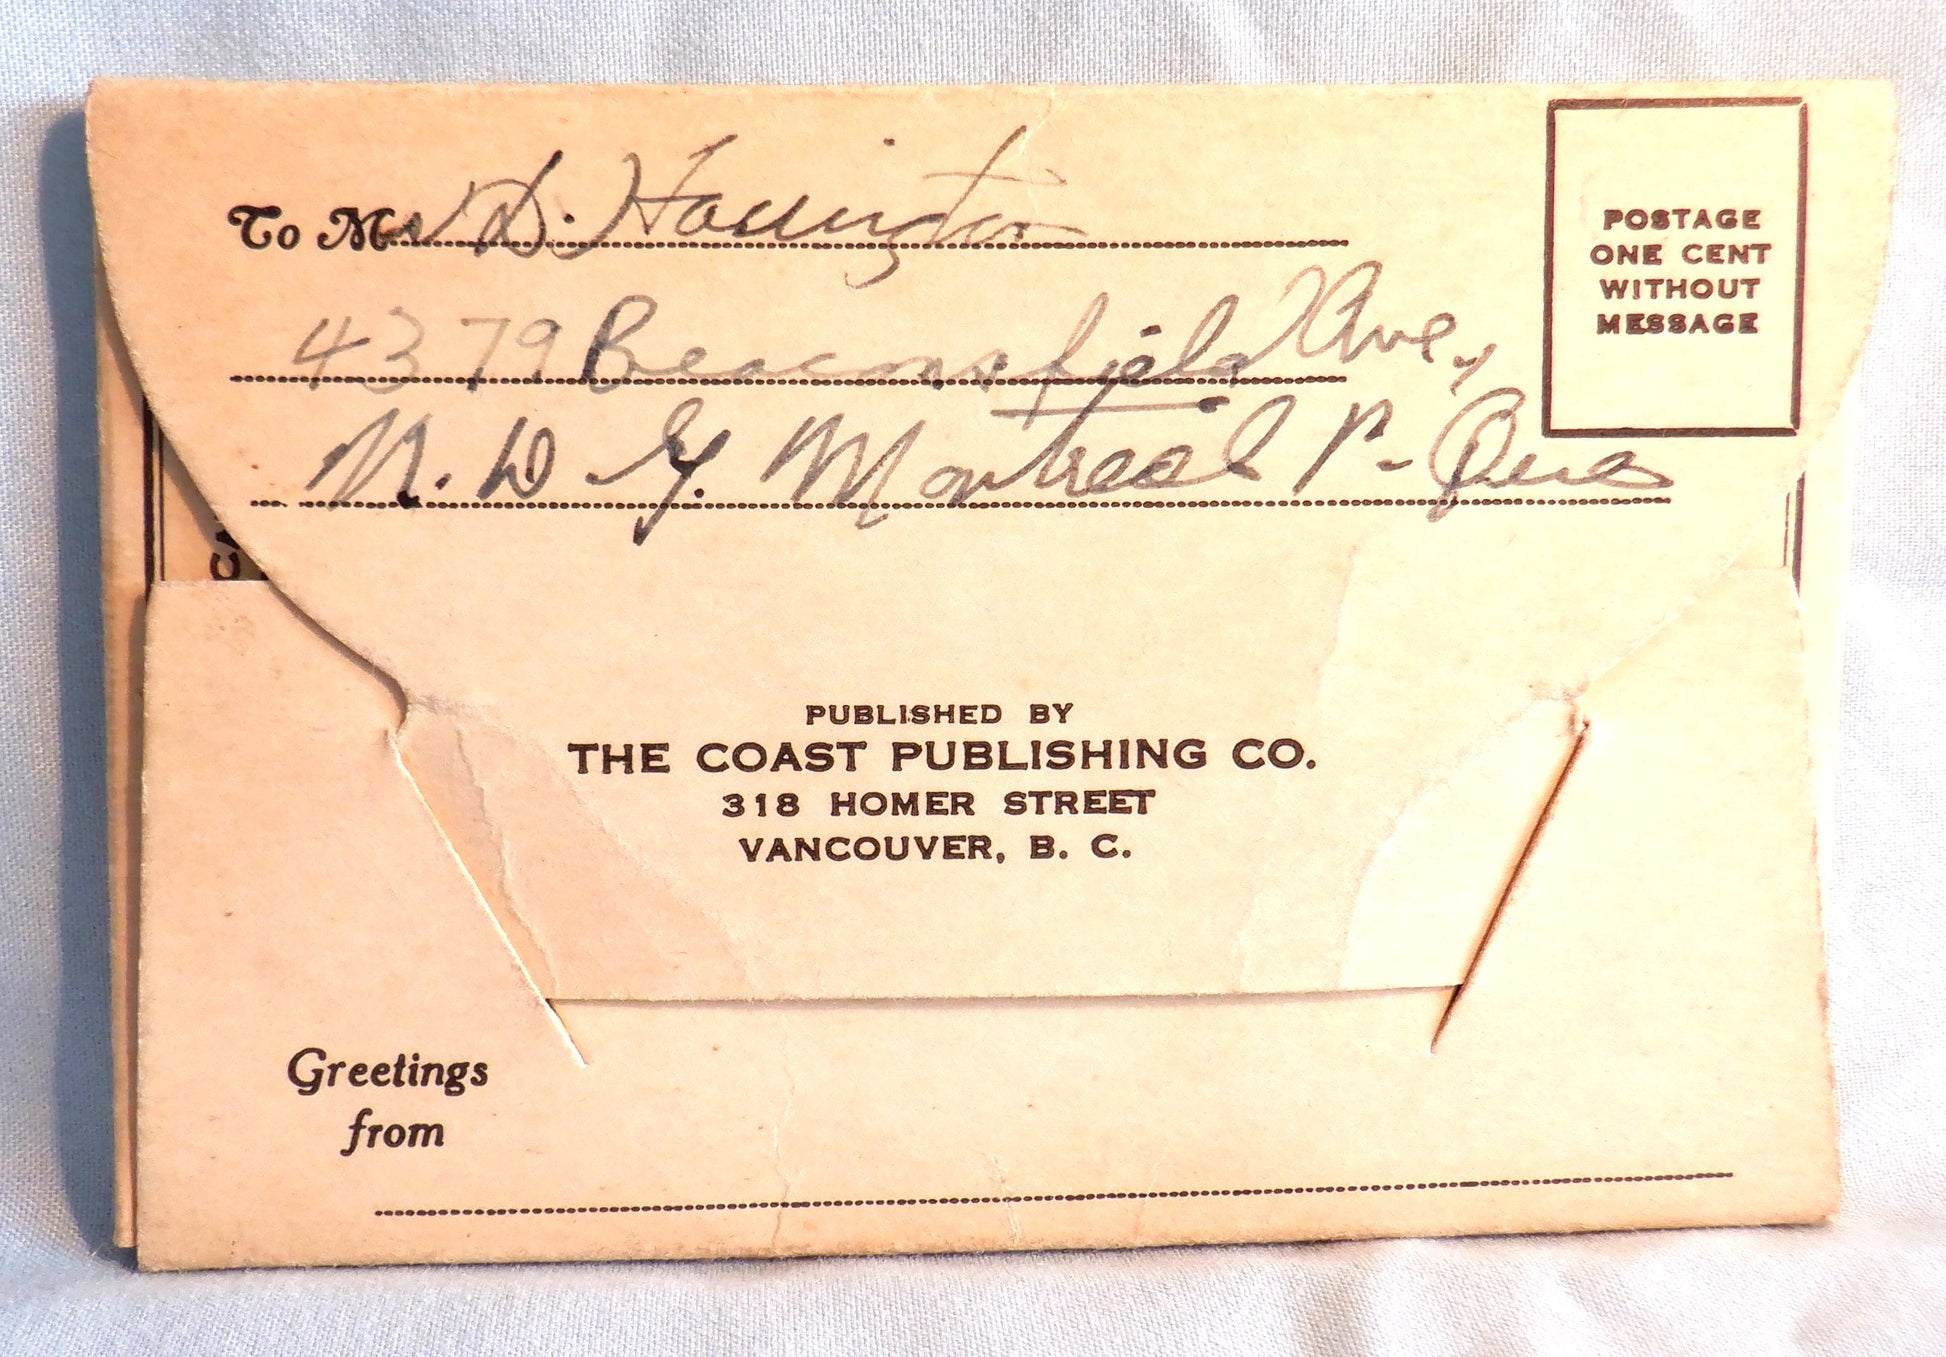 To Mrs D. Harrington
4379 Beaconsfield Ave,
N. D. G. Montreal P. Que
POSTAGE
ONE CENT
WITHOUT
MESSAGE
CA
PUBLISHED BY
THE COAST PUBLISHING CO.
318 HOMER STREET
VANCOUVER, B. C.
Greetings
from